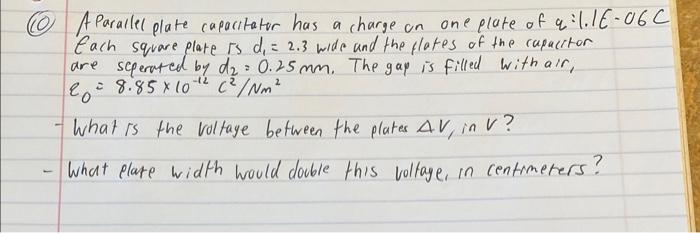 ⑩ A Parallel plate capacitator has a charge on one plate of q=1.1E-06 C
Each square plate is d₁ = 2.3 wide and the plates of the capacitor
are seperated by d₂ = 0.25 mm. The gap is filled with air,
ε₀ = 8.85 × 10⁻¹² C²/Nm²
- What is the voltage between the plates ΔV, in V?
- What plate width would double this voltage, in centimeters?